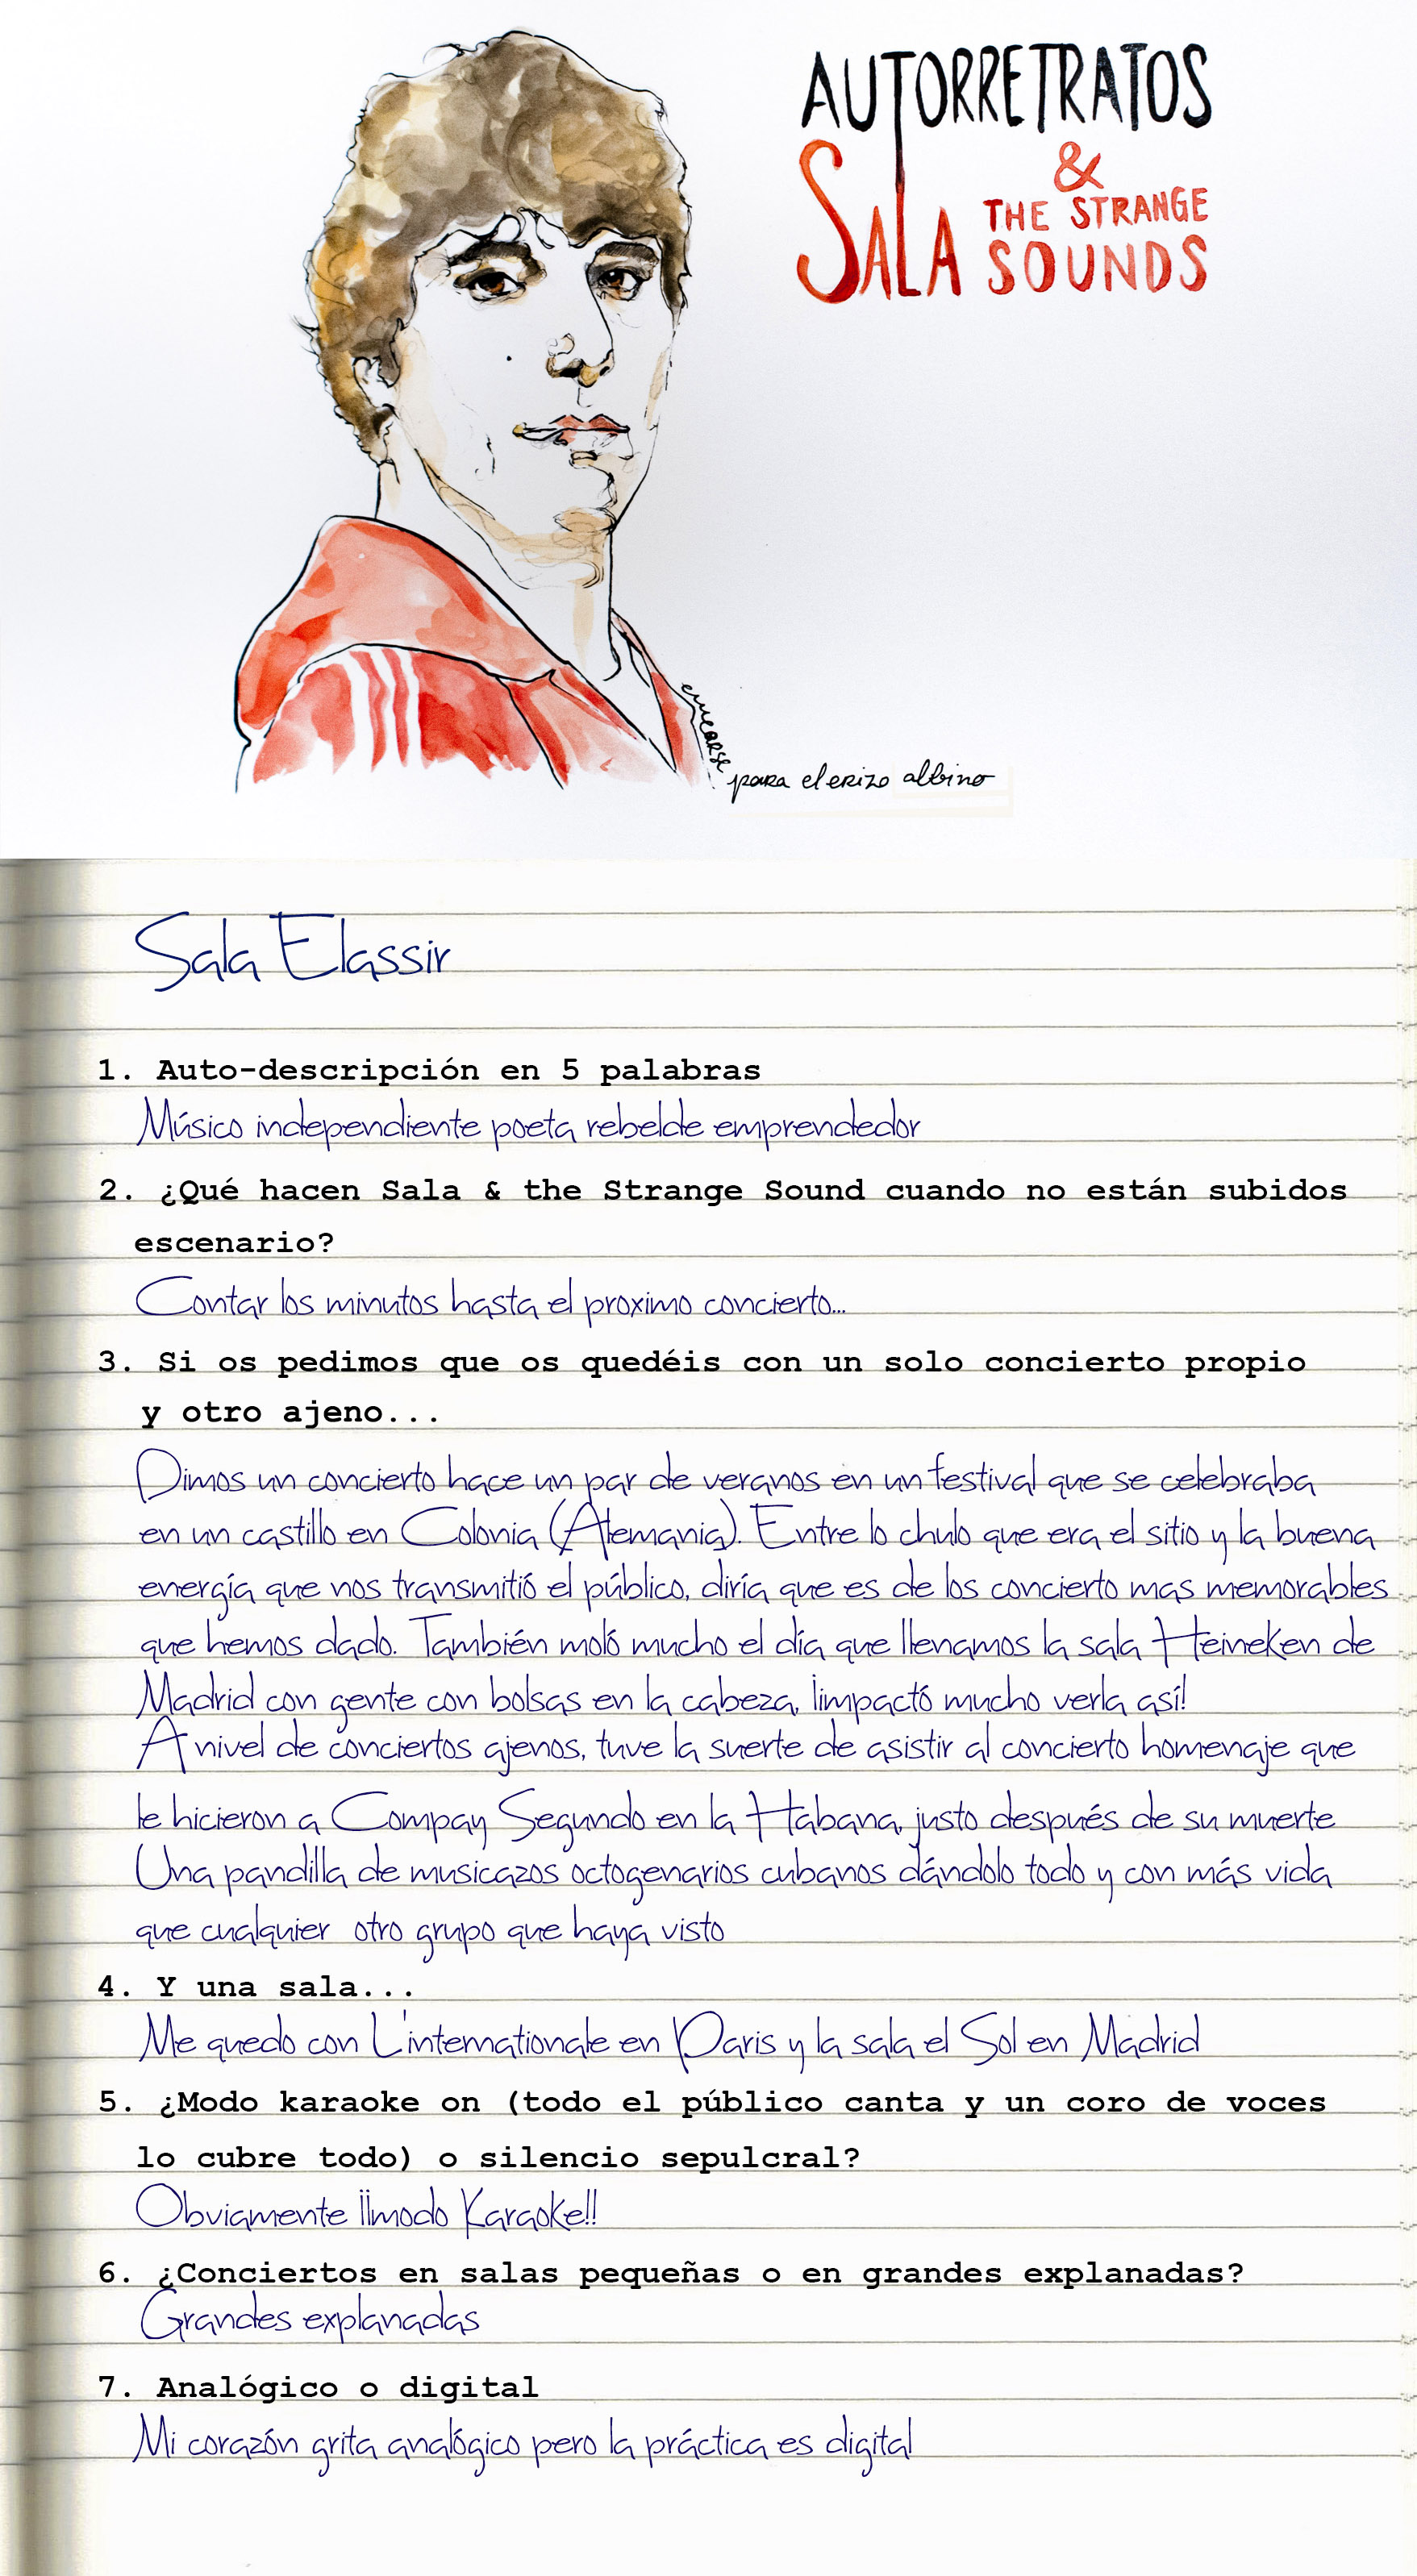 AUTORRETRATOS
&
SALA THE STRANGE
SOUNDS
emearse
para el erizo albino
Sala Elassir
1. Auto-descripción en 5 palabras
Músico independiente poeta rebelde emprendedor
2. ¿Qué hacen Sala & the Strange Sound cuando no están subidos
escenario?
Contar los minutos hasta el proximo concierto...
3. Si os pedimos que os quedéis con un solo concierto propio
y otro ajeno...
Dimos un concierto hace un par de veranos en un festival que se celebraba
en un castillo en Colonia (Alemania). Entre lo chulo que era el sitio y la buena
energía que nos transmitió el público, diría que es de los concierto mas memorables
que hemos dado. También moló mucho el día que llenamos la sala Heineken de
Madrid con gente con bolsas en la cabeza, ¡impactó mucho verla así!
A nivel de conciertos ajenos, tuve la suerte de asistir al concierto homenaje que
le hicieron a Compay Segundo en la Habana, justo después de su muerte
Una pandilla de musicazos octogenarios cubanos dándolo todo y con más vida
que cualquier otro grupo que haya visto
4. Y una sala...
Me quedo con L'internationale en Paris y la sala el Sol en Madrid
5. ¿Modo karaoke on (todo el público canta y un coro de voces
lo cubre todo) o silencio sepulcral?
Obviamente ¡¡modo Karaoke!!
6. ¿Conciertos en salas pequeñas o en grandes explanadas?
Grandes explanadas
7. Analógico o digital
Mi corazón grita analógico pero la práctica es digital